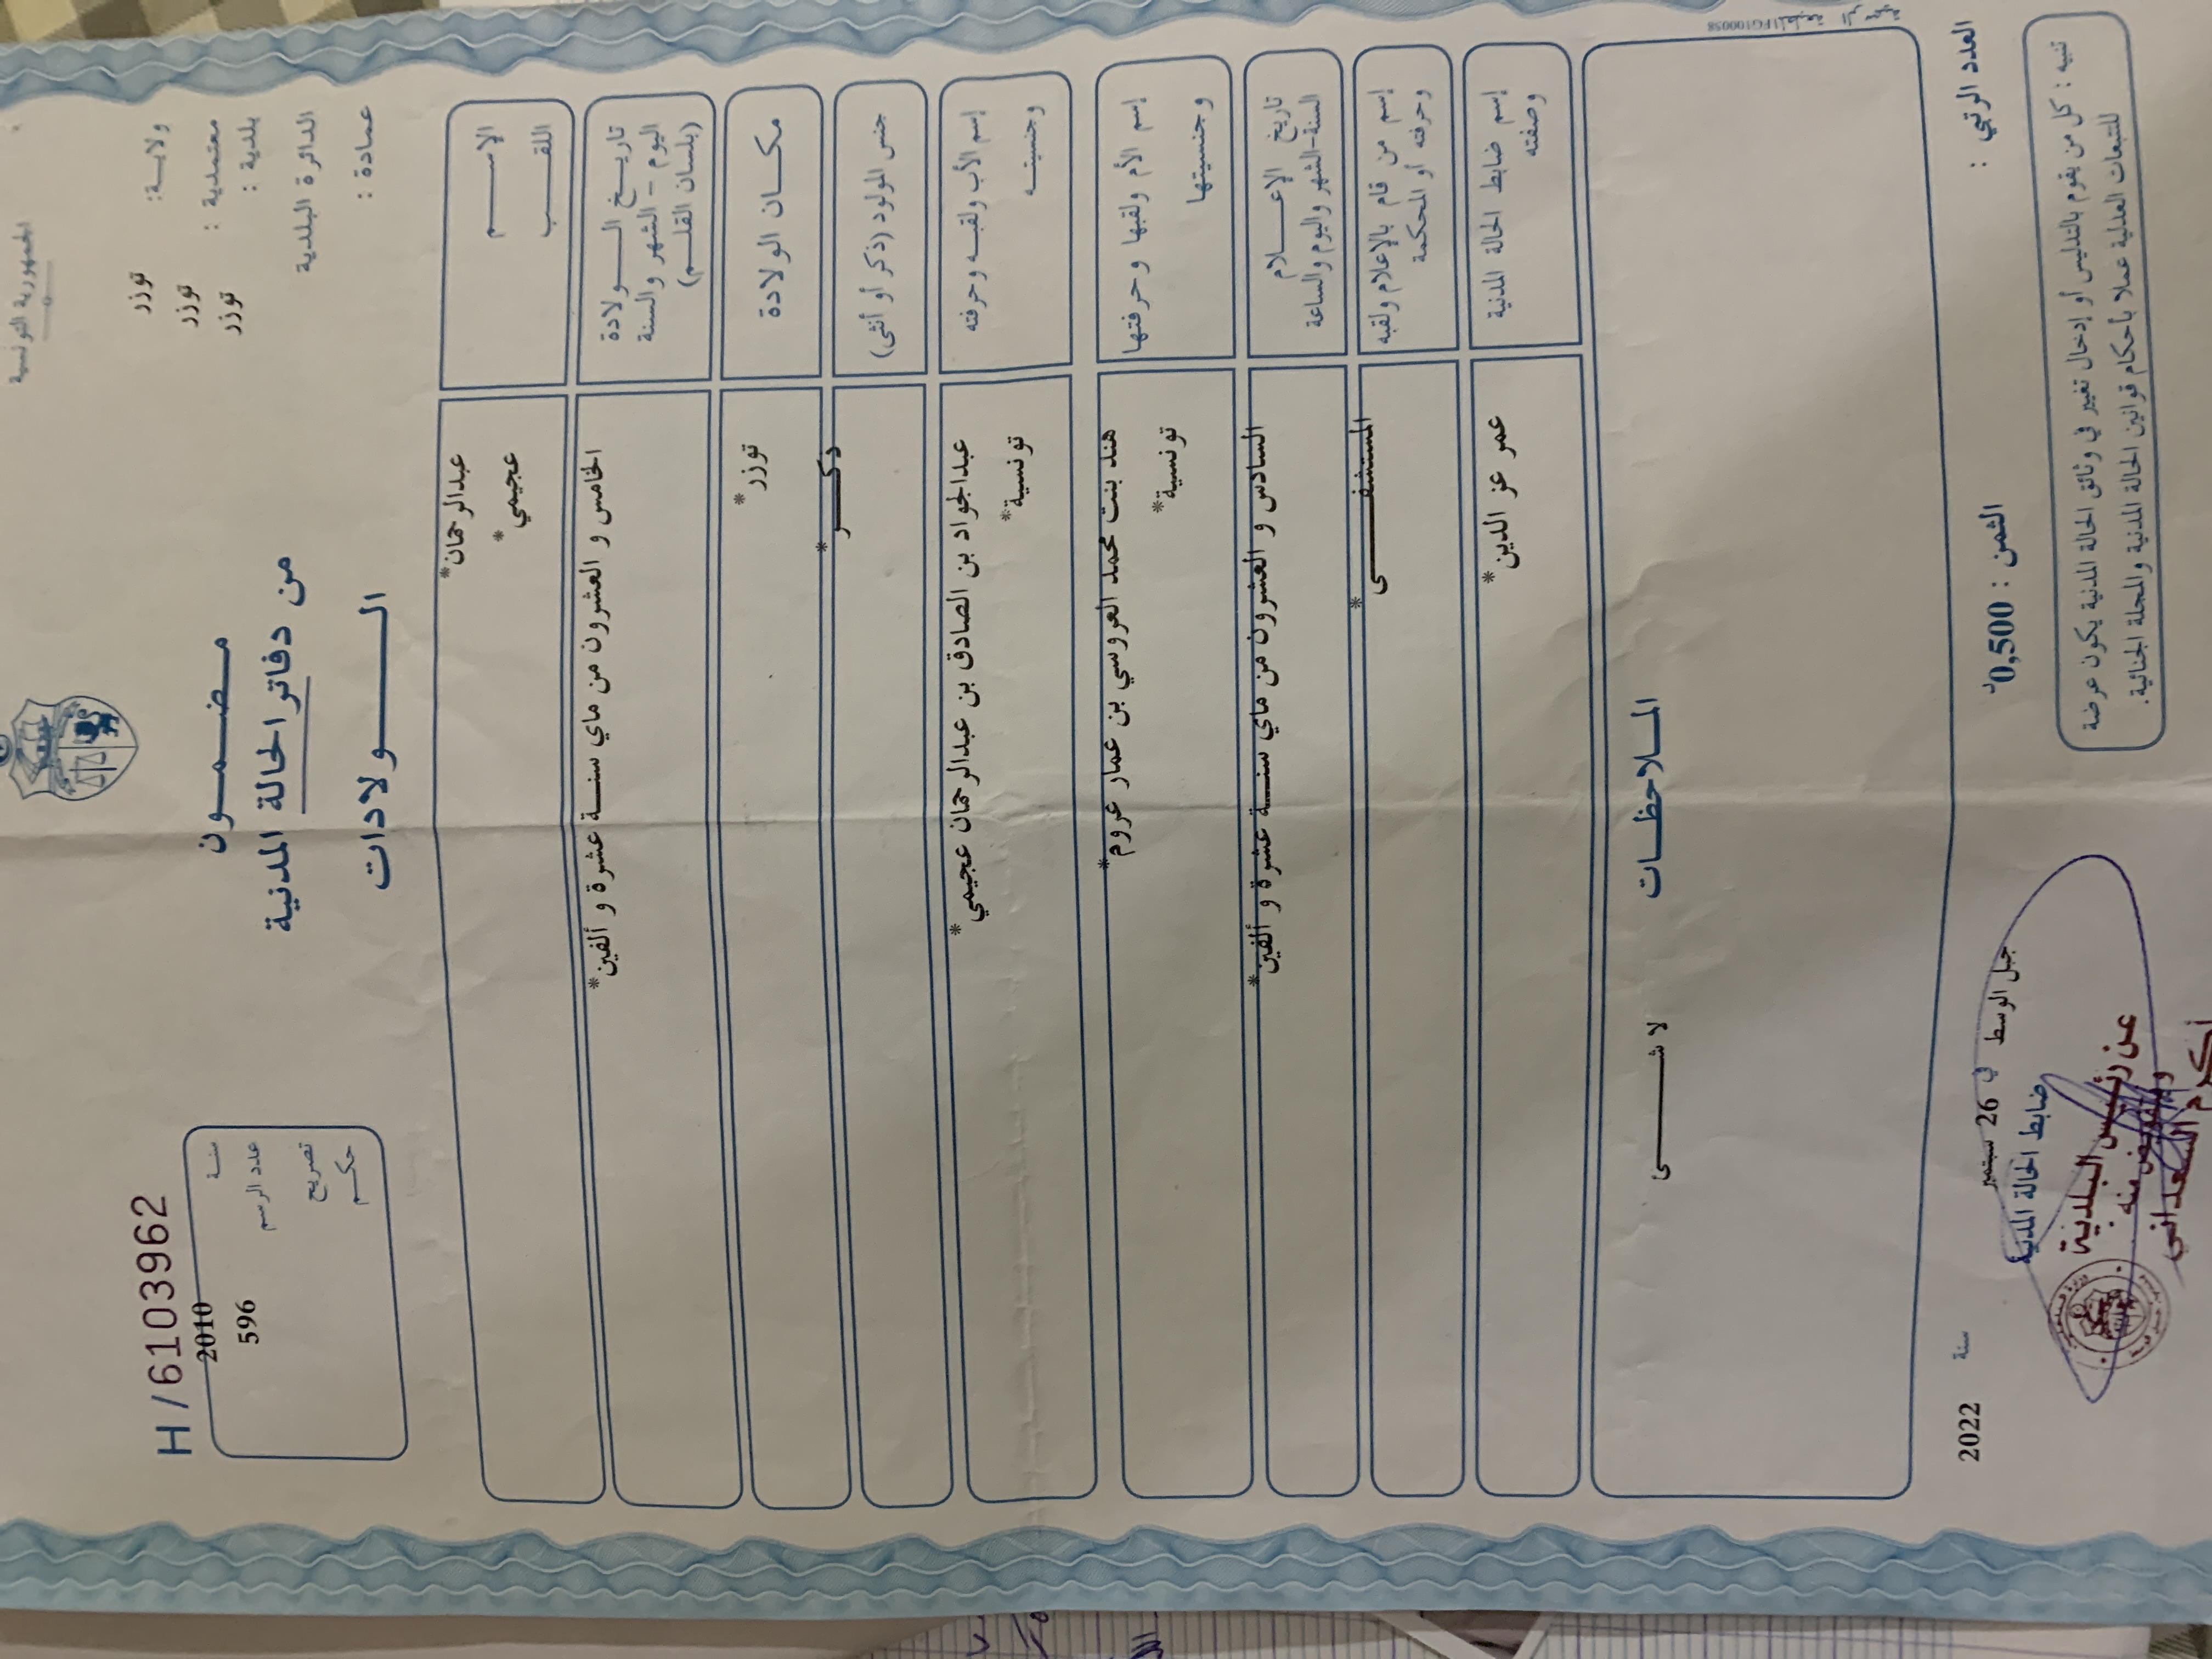 الجمهورية التونسية
ولايــة: توزر
معتمدية : توزر
بلدية : توزر
الدائرة البلدية
عمادة :
H/6103962
سنة 2010
عدد الرسم 596
تصريح
حكم
مضمون
من دفاتر الحالة المدنية
الولادات
الاسم عبدالرحمان*
اللقب عجيمي*
تاريخ الولادة الخامس و العشرون من ماي سنة عشرة و ألفين*
اليوم - الشهر والسنة
(بلسان القلم)
مكان الولادة توزر*
جنس المولود (ذكر أو أنثى) ذكر*
إسم الأب ولقبه وحرفته عبدالجواد بن الصادق بن عبدالرحمان عجيمي*
وجنسيته تونسية*
إسم الأم ولقبها وحرفتها هند بنت محمد العروسي بن عمار عروم*
وجنسيتها تونسية*
تاريخ الإعلام السادس و العشرون من ماي سنة عشرة و ألفين*
السنة-الشهر واليوم والساعة
إسم من قام بالإعلام ولقبه المستشفى*
وحرفته أو المحكمة
إسم ضابط الحالة المدنية عمر عز الدين*
وصفته
الملاحظات
لا شى
FG100058
العدد الرتبي :
الثمن : 0,500د
جبل الوسط في 26 سبتمبر سنة 2022
ضابط الحالة المدنية
عن رئيس البلدية
وبتفويض منه
أكرم السعداني
تنبيه : كل من يقوم بالتدليس أو إدخال تغيير في وثائق الحالة المدنية يكون عرضة
للتتبعات العدلية عملا بأحكام قوانين الحالة المدنية والمجلة الجنائية.